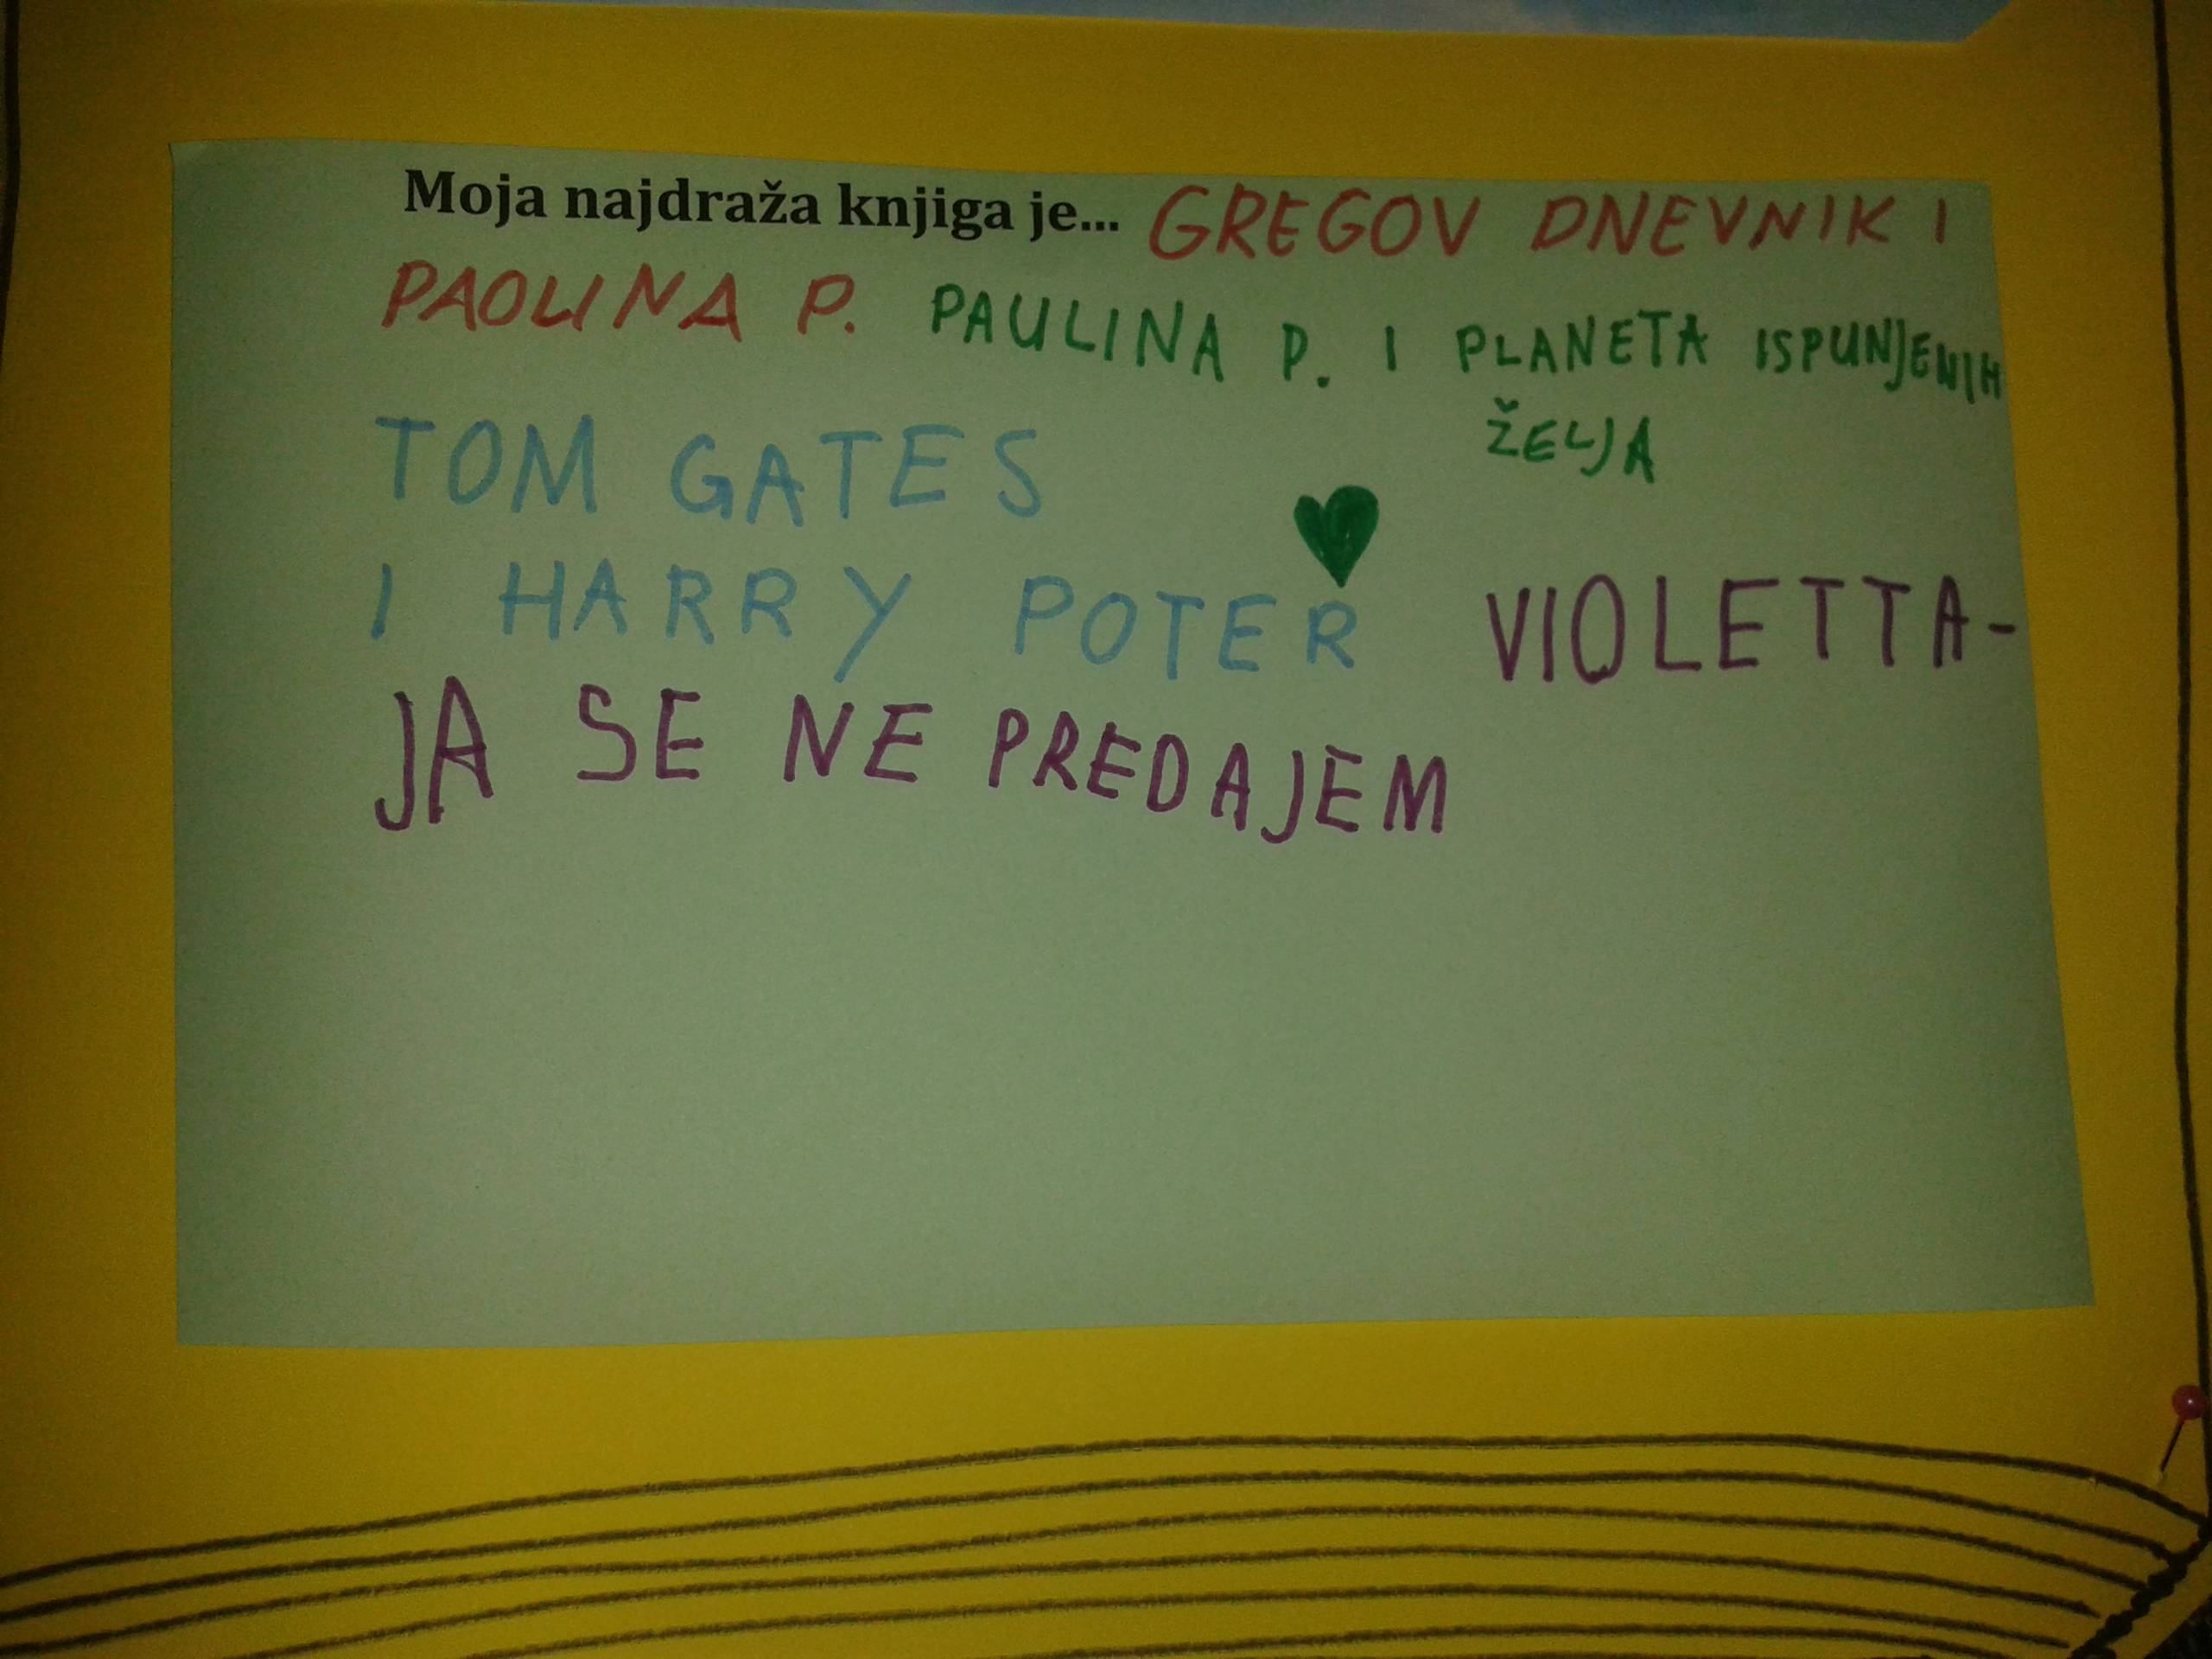 Moja najdraža knjiga je... GREGOV DNEVNIK I
PAOLINA P. PAULINA P. I PLANETA ISPUNJENIH
ŽELJA
TOM GATES
I HARRY POTER VIOLETTA-
JA SE NE PREDAJEM